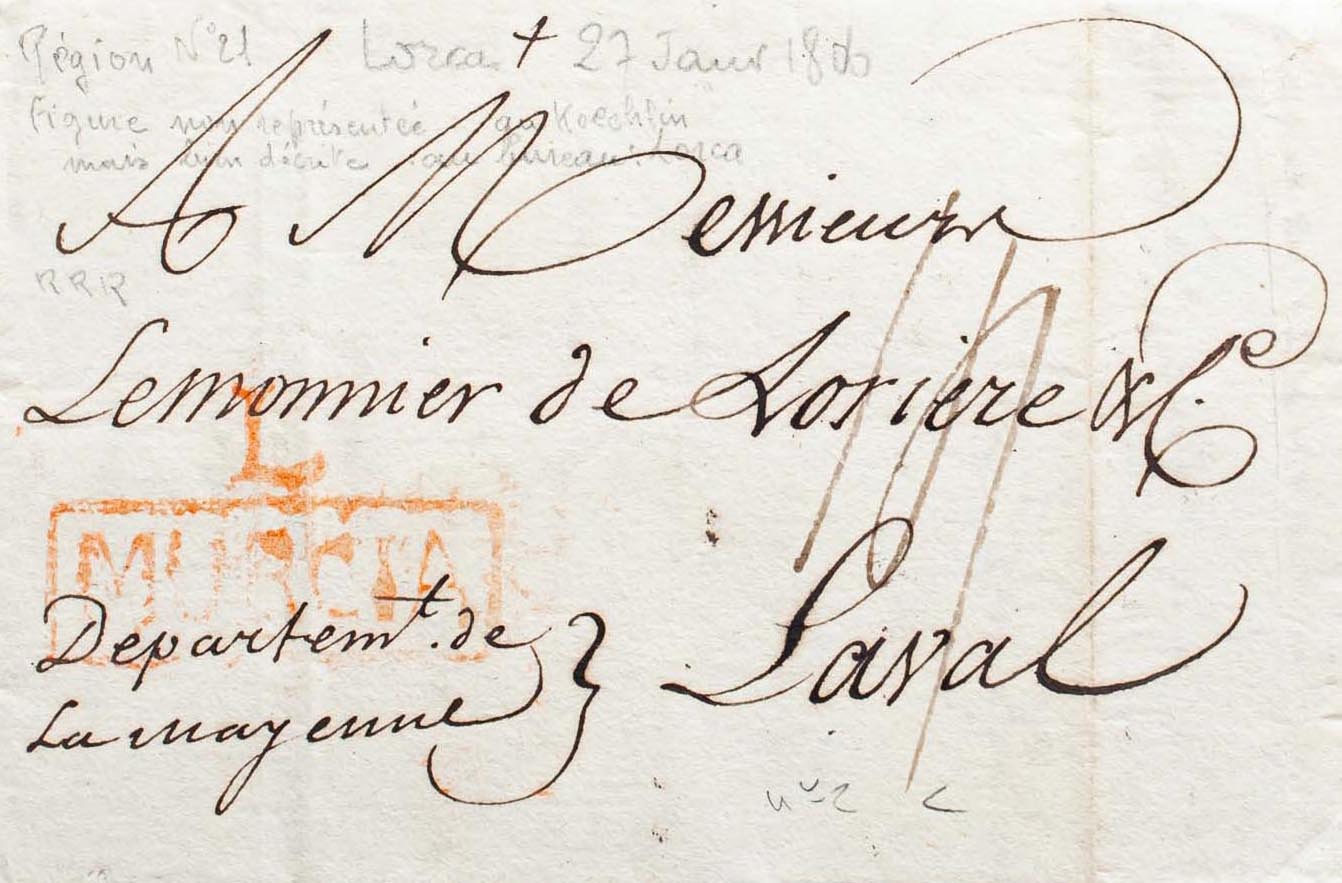 Région N° 21 Lorca + 27 Janv
Figure non représentée au Koechlin
mais bien décrite au bureau: Lorca
A Messieurs
RRR
Lemonnier de Loriere & Ce.
L
MURCIA
Departemt. de
La mayenne
Laval